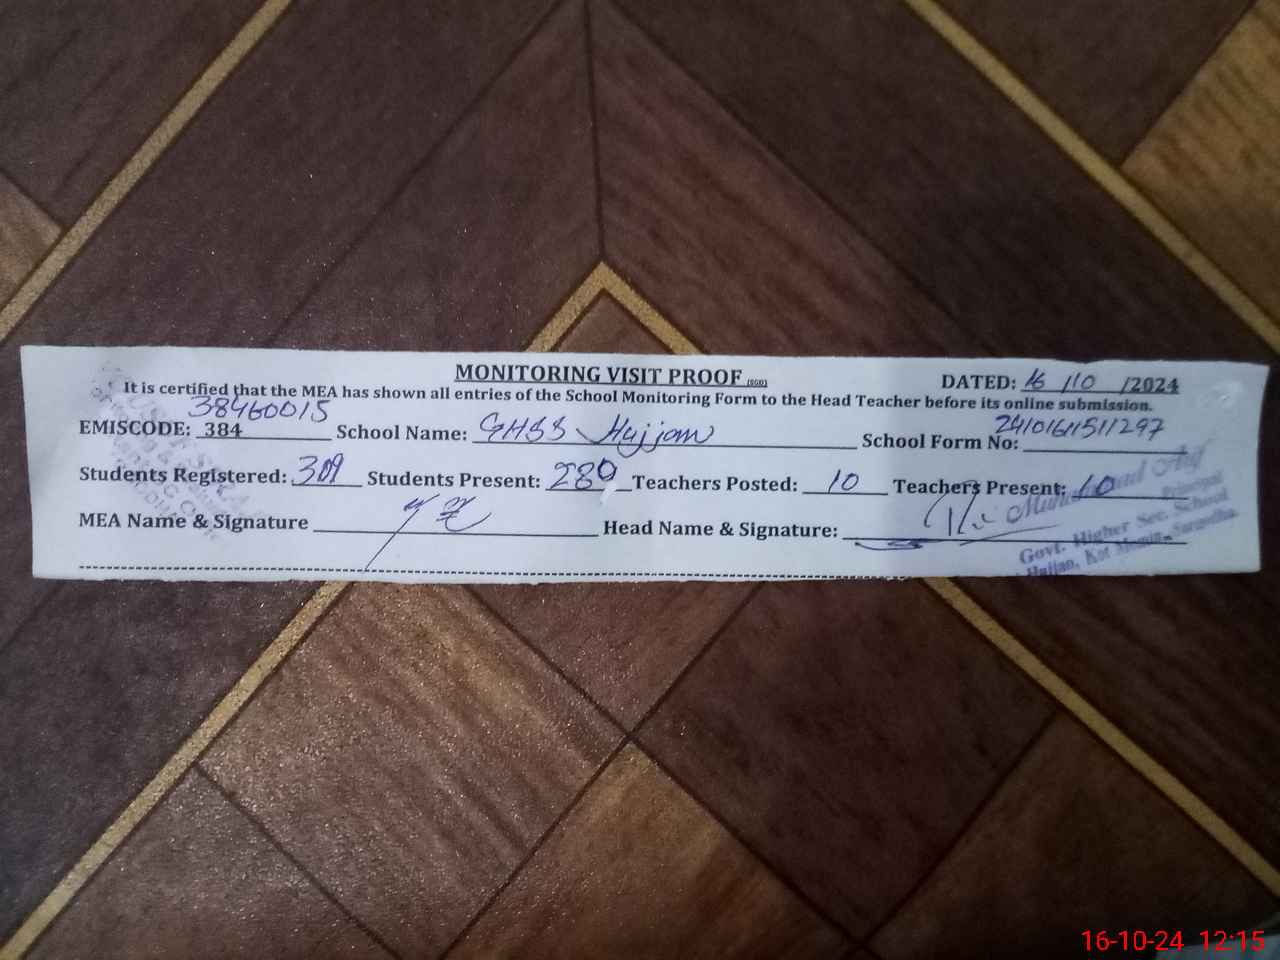 MONITORING VISIT PROOF (SGD)
DATED: 16 /10 /2024
It is certified that the MEA has shown all entries of the School Monitoring Form to the Head Teacher before its online submission.
38460015
EMISCODE: 384 School Name: GHSS Hujjan School Form No: 2410161511297
Students Registered: 309 Students Present: 280 Teachers Posted: 10 Teachers Present: 10
MEA Name & Signature Head Name & Signature:
Muhammad Arif
Principal
Govt. Higher Sec. School
Hujjan, Kot Momin, Sargodha.
16-10-24 12:15